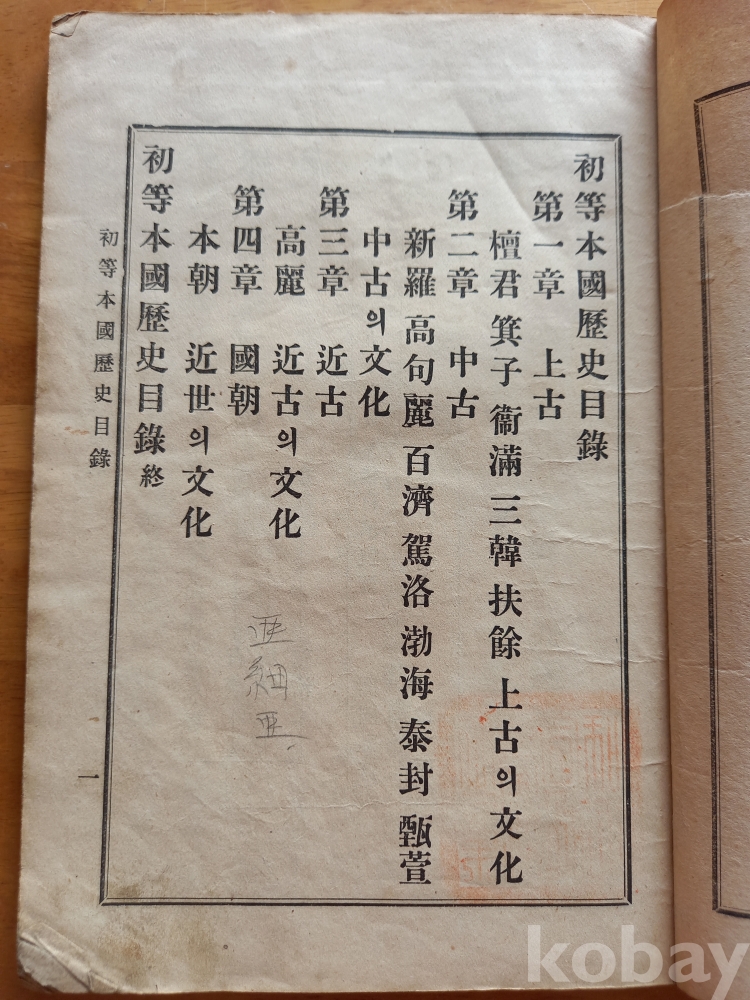 初等本國歷史目錄
第一章 上古
檀君 箕子 衞滿 三韓 扶餘 上古의文化
第二章 中古
新羅 高句麗 百濟 駕洛 渤海 泰封 甄萱
中古의文化
第三章 近古
高麗 近古의文化
第四章 國朝
本朝 近世의文化
初等本國歷史目錄終
初等本國歷史目錄
一
細亞
kobay